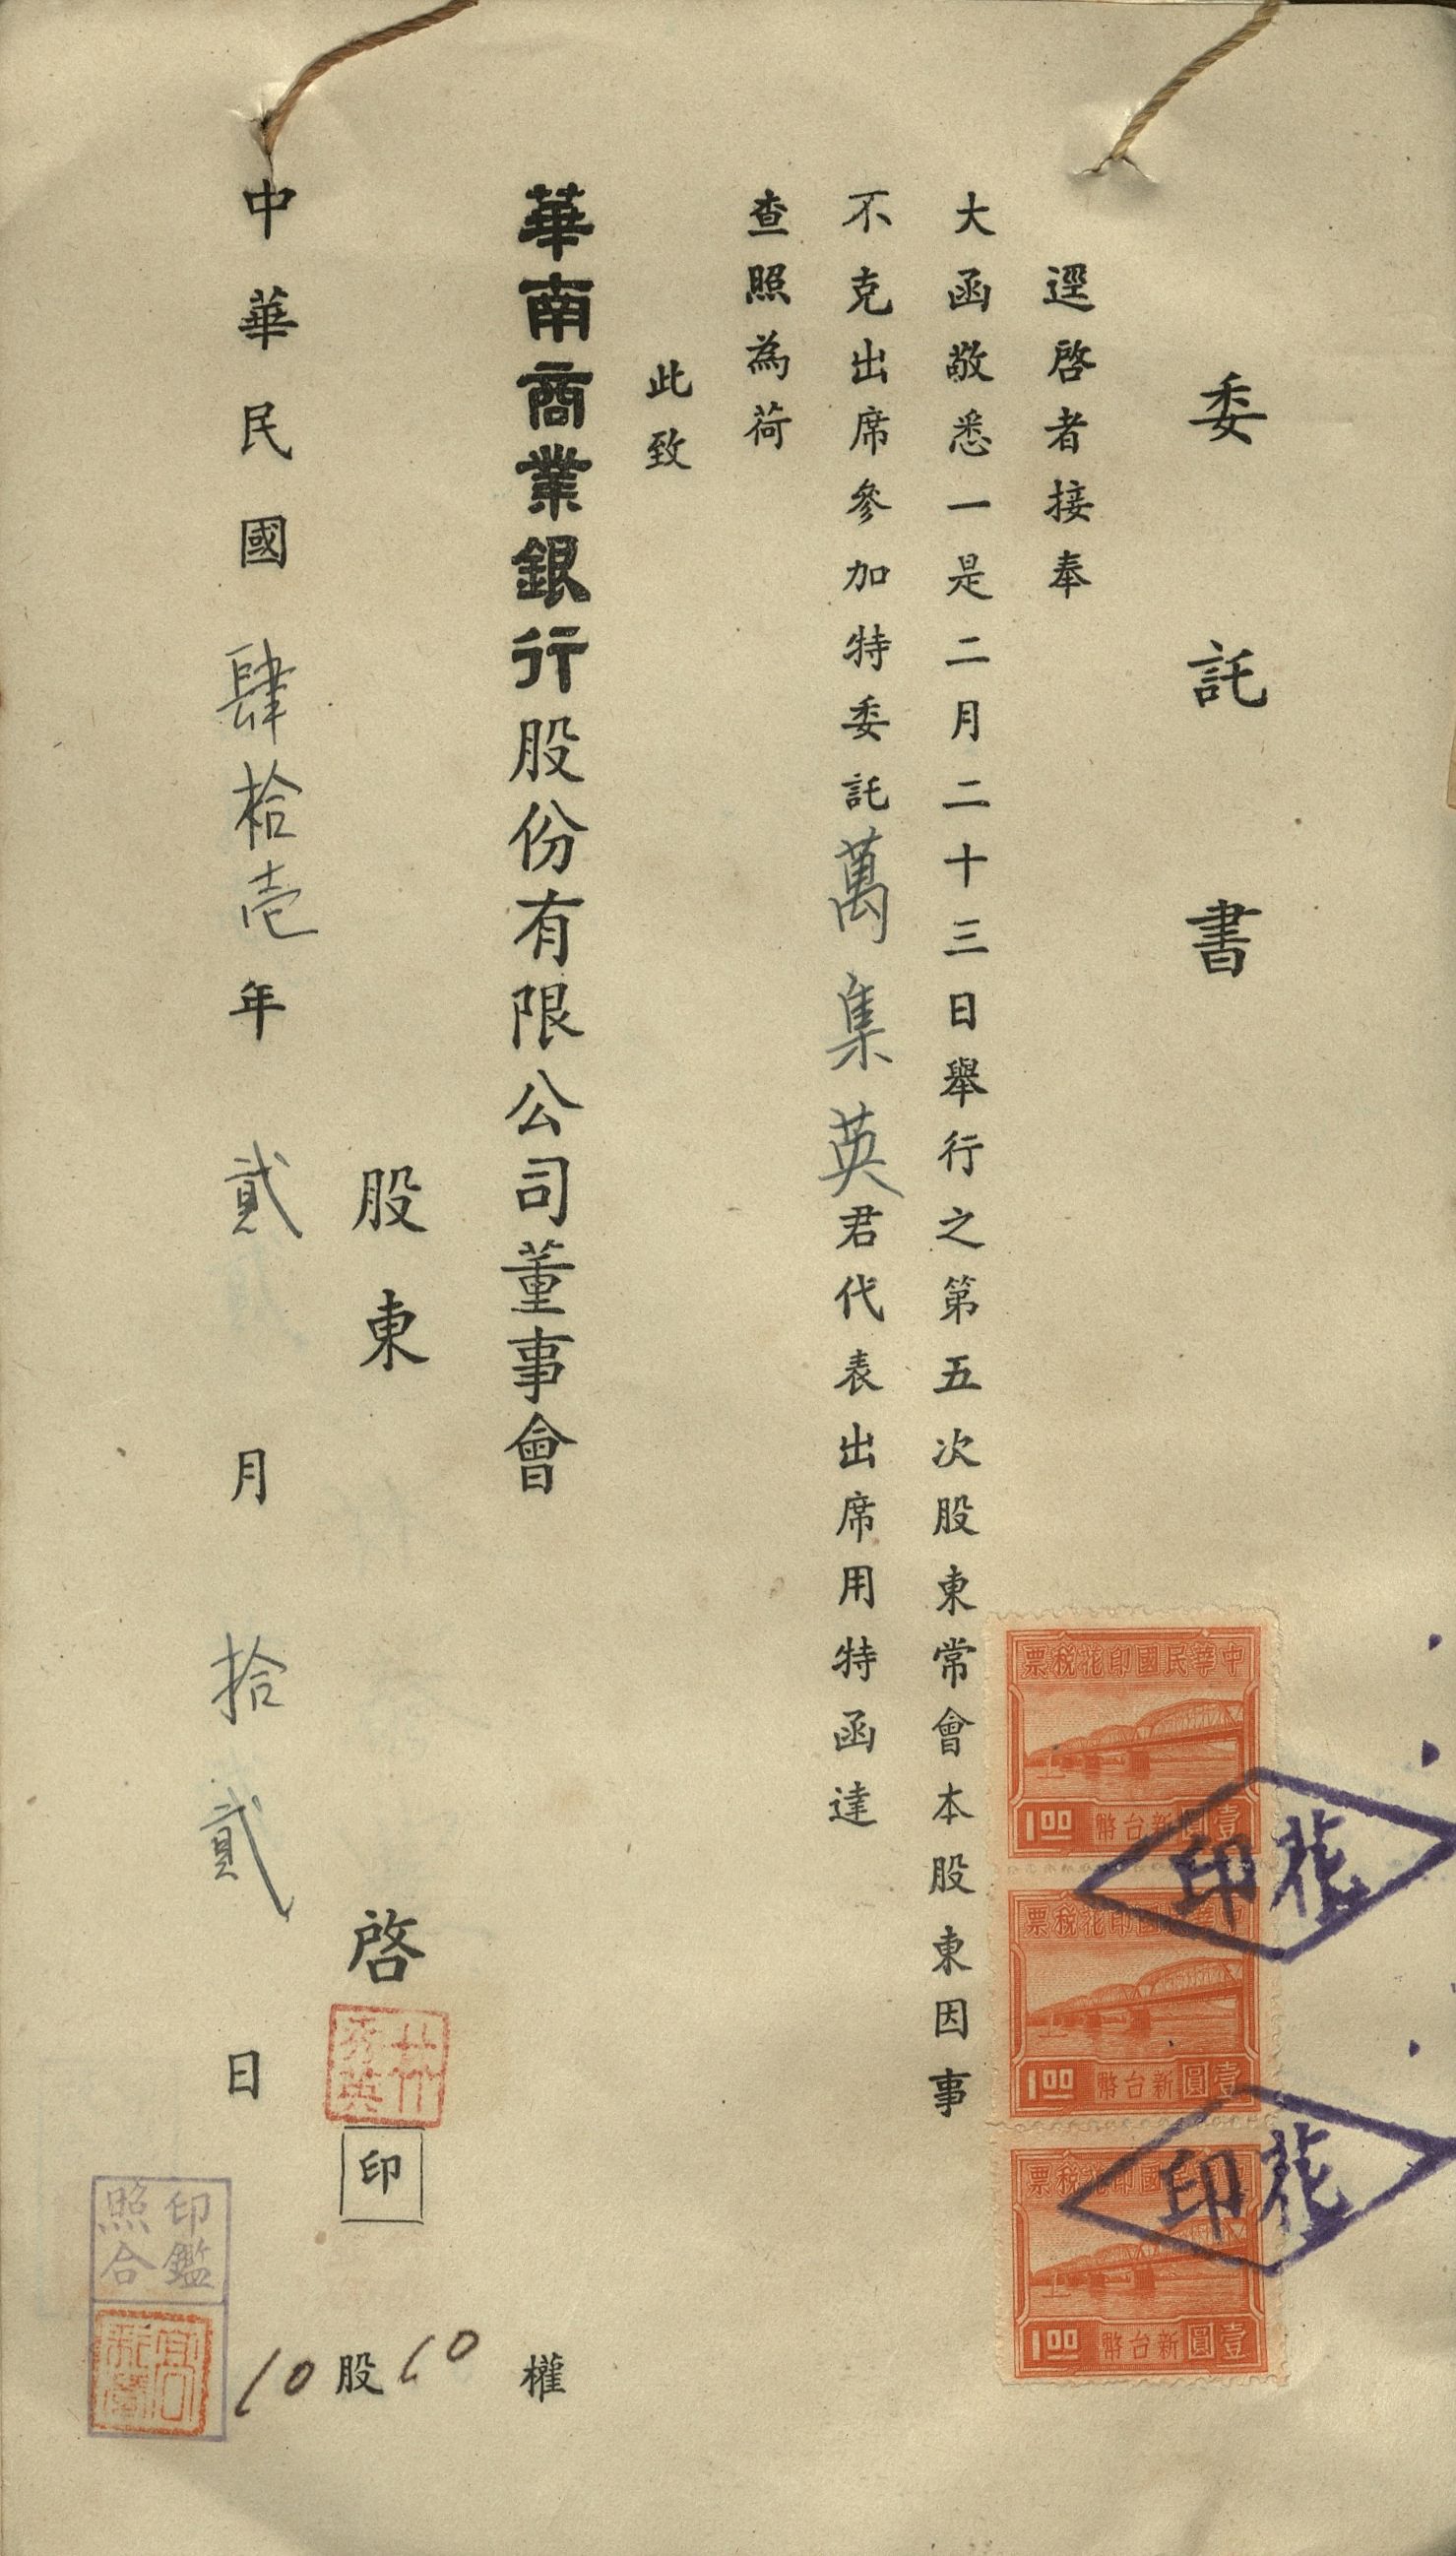 委託書
逕啓者接奉
大函敬悉一是二月二十三日舉行之第五次股東常會本股東因事
不克出席參加特委託萬集英君代表出席用特函達
查照為荷
此致
華南商業銀行股份有限公司董事會
股東 啓
印
中華民國肆拾壱年貳月拾貳日
10股10權
印鑑
照合
中華民國印花稅票
壹圓新台幣 1.00
中華民國印花稅票
壹圓新台幣 1.00
中華民國印花稅票
壹圓新台幣 1.00
印花
印花